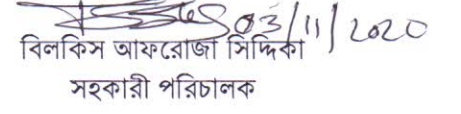 03/11/2020
বিলকিস আফরোজা সিদ্দিকা
সহকারী পরিচালক